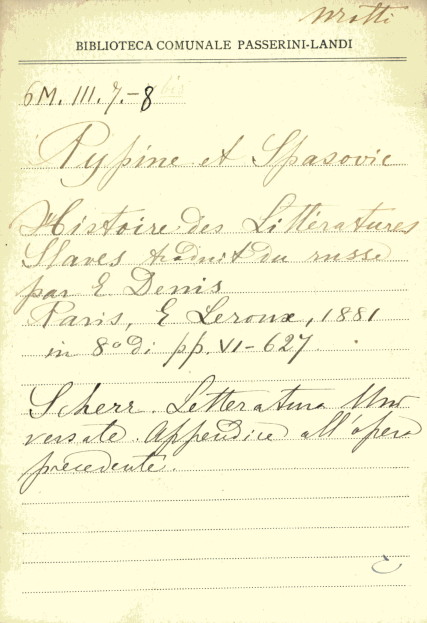 BIBLIOTECA COMUNALE PASSERINI-LANDI
6M. III. 7.-8
Pypine et Spasovic
Histoire des Littératures
Slaves traduit du russe
par E Denis
Paris, E Leroux, 1881
in 8° di pp. VI-627.
Scherr. Letteratura Uni
versale. Appendice all'opera
precedente.